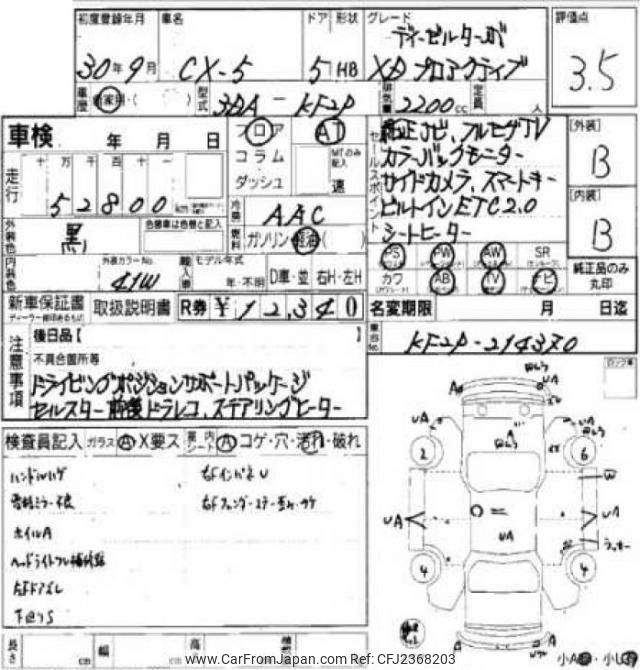 初度登録年月 車名 ドア 形状 グレード 評価点
ディーゼルターボ
30年9月 CX-5 5 HB XD プロアクティブ 3.5
車歴 自家用・( ) 型式 3DA-KF2P 排気量 2200cc 定員 人
車検 年 月 日
フロア AT
コラム MTのみ記入
ダッシュ 速
走行 十 万 千 百 十 一
52800
セールスポイント
純正ナビ、フルセグTV
カラーバックモニター
サイドカメラ、スマートキー
ビルトインETC2.0
シートヒーター
[外装]
B
[内装]
B
純正品のみ丸印
冷房 AAC
燃料 ガソリン 軽油 ( )
外装色 黒 色替車は色替と記入
内装色 外装カラーNo. 41W
輸入車 モデル年式 年・不明 D車・並 右H・左H
PS PW AW SR
カワ AB TV ナビ
新車保証書 取扱説明書 R券 ¥12,340
ディーラー捺印あるもの
名変期限 月 日迄
車台No. KF2P-214370
注意事項
後日品【 】
不具合箇所等
ドライビングポジションサポートパッケージ
セルスター前後ドラレコ、ステアリングヒーター
検査員記入 ガラス A X要ス 内シート A コゲ・穴・汚れ・破れ
ハンドルハゲ
ホイルA
右FインパネU
下回りS
ロック車
A
UA
UA
2
6
W
UA
UA
UA
4
4
長さ cm 幅 cm 高さ
www.CarFromJapan.com Ref: CFJ2368203